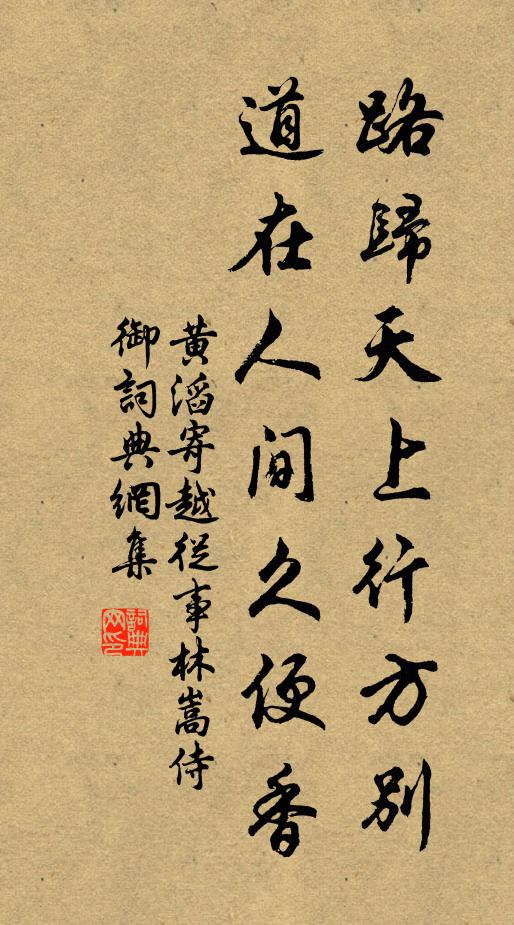 路歸天上行方別
道在人間久便香
黃滔寄越從事林嵩侍
御詞典網集
詞典
網印